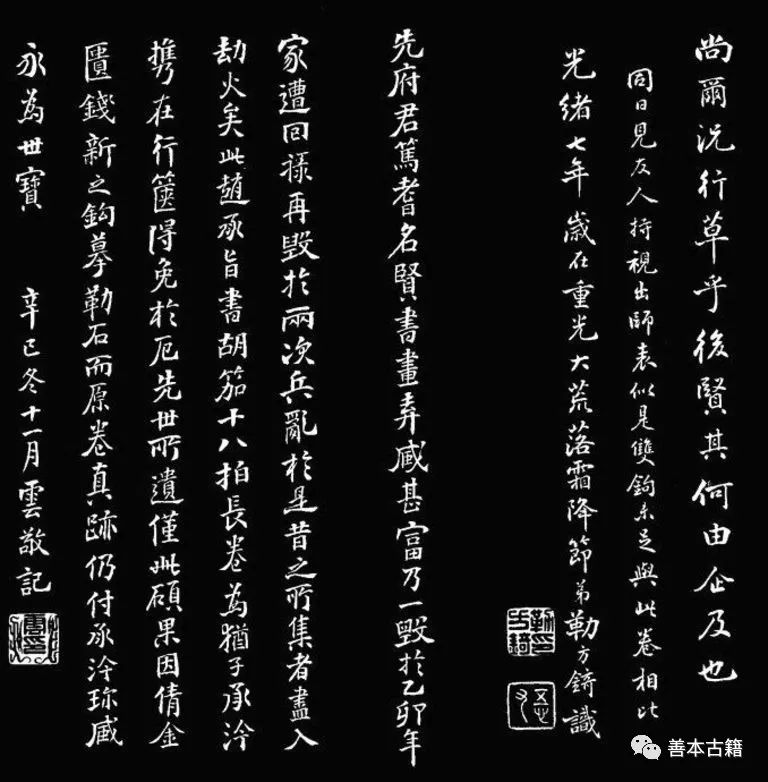 尚爾況行草乎後賢其何由企及也
同日見友人持視出師表似是雙鉤未足與此卷相比
光緒七年歲在重光大荒落霜降節弟勒方錡識
先府君篤耆名賢書畫弆臧甚富乃一毀於乙卯年
家遭回祿再毀於兩次兵亂於是昔之所集者盡入
劫火矣此趙承旨書胡笳十八拍長卷為猶子承泠
攜在行篋得免於厄先世所遺僅此碩果因倩金
匱錢新之鉤摹勒石而原卷真跡仍付承泠珍臧
永為世寶 辛巳冬十一月雲敬記
善本古籍